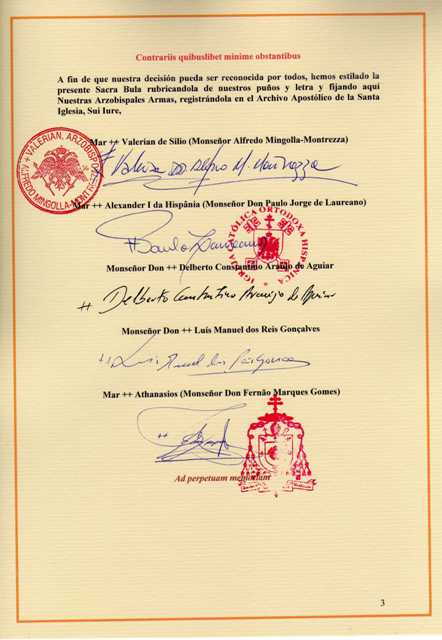 Contrariis quibuslibet minime obstantibus
A fin de que nuestra decisión pueda ser reconocida por todos, hemos estilado la
presente Sacra Bula rubricandola de nuestros puños y letra y fijando aquí
Nuestras Arzobispales Armas, registrándola en el Archivo Apostólico de la Santa
Iglesia, Sui Iure,
Mar ++ Valerian de Silio (Monseñor Alfredo Mingolla-Montrezza)
+ VALERIAN. ARZOBISPO
ALFREDO MINGOLLA-MONTREZZA
Mar ++ Alexander I da Hispânia (Monseñor Don Paulo Jorge de Laureano)
Paulo Laureano
IGREJA CATÓLICA ORTODOXA HISPÂNICA
Monseñor Don ++ Delberto Constantino Araújo de Aguiar
++ Delberto Constantino Araujo de Aguiar
Monseñor Don ++ Luís Manuel dos Reis Gonçalves
++ Luis Manuel dos Reis Gonçalves
Mar ++ Athanasios (Monseñor Don Fernão Marques Gomes)
++
Ad perpetuam memoriam
3